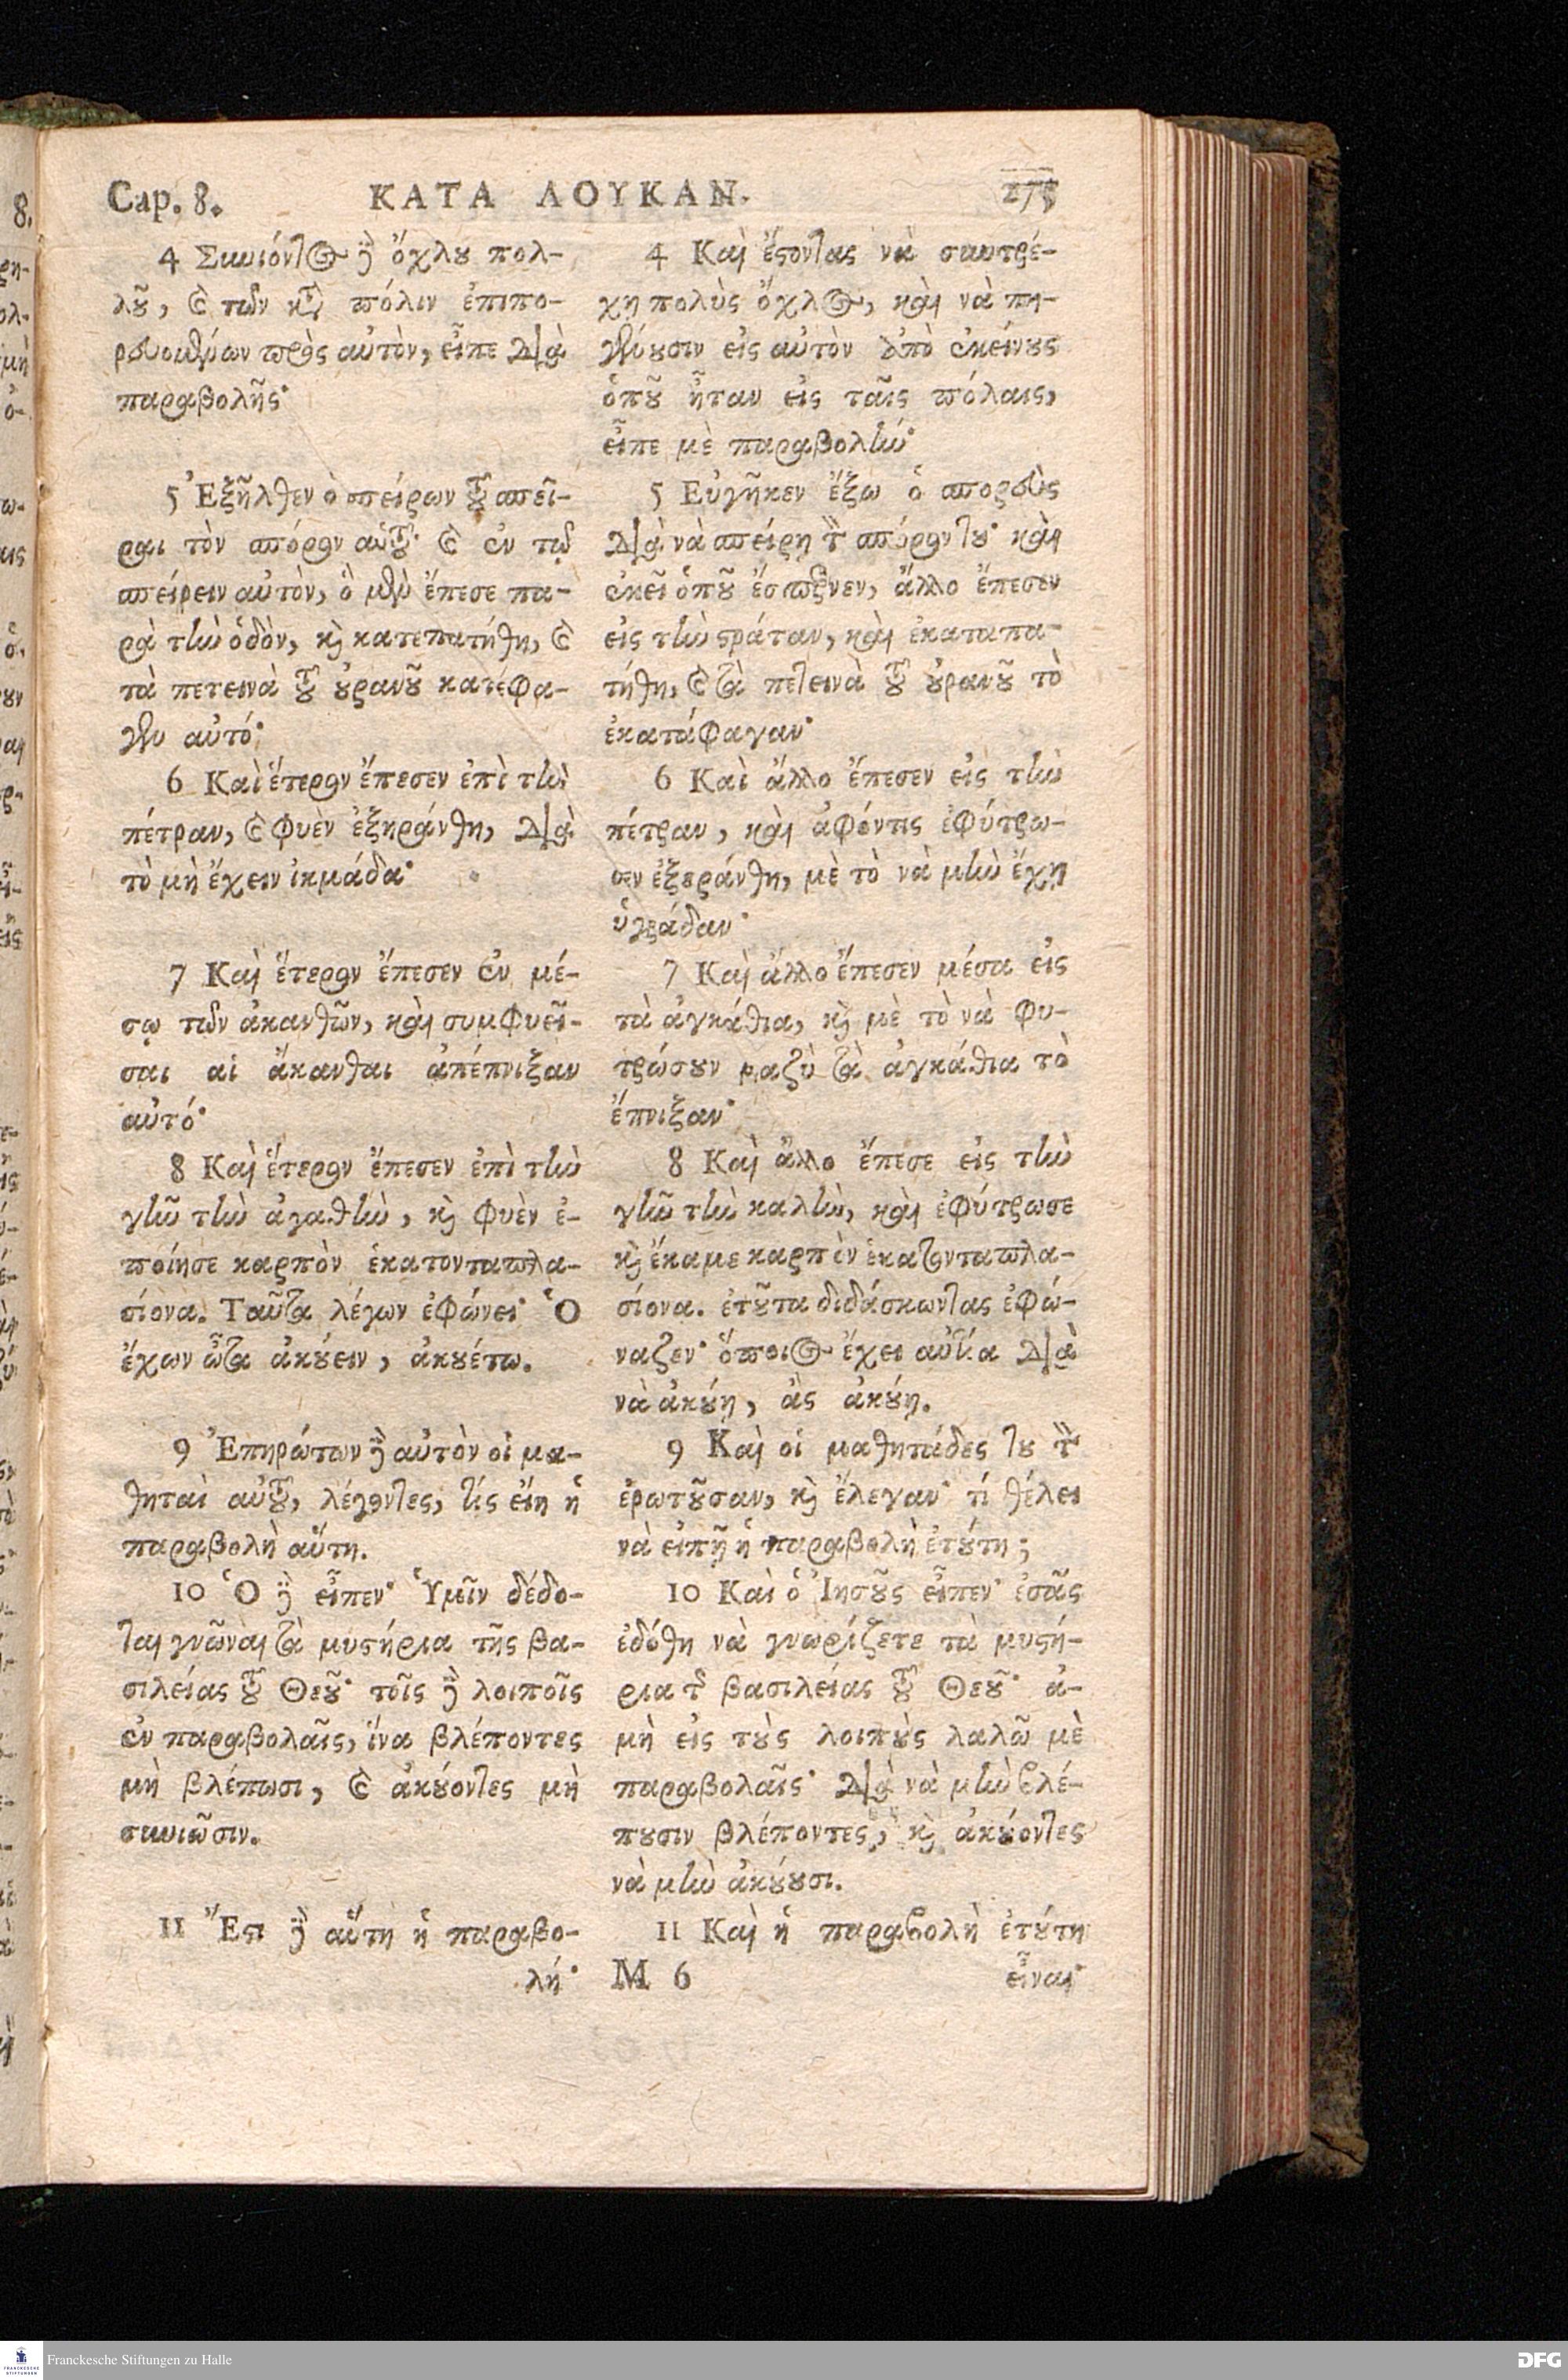 Cap. 8. ΚΑΤΑ ΛΟΥΚΑΝ. 275
4 Συνιόντος δὲ ὄχλου πολ-
λοῦ, καὶ τῶν κατὰ πόλιν ἐπιπο-
ρευομένων πρὸς αὐτὸν, εἶπε διὰ
παραβολῆς·
5 Ἐξῆλθεν ὁ σπείρων τοῦ σπεῖ-
ραι τὸν σπόρον αὑτοῦ· καὶ ἐν τῷ
σπείρειν αὐτὸν, ὃ μὲν ἔπεσε πα-
ρὰ τὴν ὁδὸν, καὶ κατεπατήθη, καὶ
τὰ πετεινὰ τοῦ οὐρανοῦ κατέφα-
γεν αὐτό·
6 Καὶ ἕτερον ἔπεσεν ἐπὶ τὴν
πέτραν, καὶ φυὲν ἐξηράνθη, διὰ
τὸ μὴ ἔχειν ἰκμάδα·
7 Καὶ ἕτερον ἔπεσεν ἐν μέ-
σῳ τῶν ἀκανθῶν, καὶ συμφυεῖ-
σαι αἱ ἄκανθαι ἀπέπνιξαν
αὐτό·
8 Καὶ ἕτερον ἔπεσεν ἐπὶ τὴν
γῆν τὴν ἀγαθὴν, καὶ φυὲν ἐ-
ποίησε καρπὸν ἑκατονταπλα-
σίονα. Ταῦτα λέγων ἐφώνει· Ὁ
ἔχων ὦτα ἀκούειν, ἀκουέτω.
9 Ἐπηρώτων δὲ αὐτὸν οἱ μα-
θηταὶ αὐτοῦ, λέγοντες, τίς εἴη ἡ
παραβολὴ αὕτη.
10 Ὁ δὲ εἶπεν· Ὑμῖν δέδο-
ται γνῶναι τὰ μυστήρια τῆς βα-
σιλείας τοῦ Θεοῦ· τοῖς δὲ λοιποῖς
ἐν παραβολαῖς, ἵνα βλέποντες
μὴ βλέπωσι, καὶ ἀκούοντες μὴ
συνιῶσιν.
11 Ἔστι δὲ αὕτη ἡ παραβο-
λή·
4 Καὶ ἔστοντας νὰ συντρέ-
χῃ πολὺς ὄχλος, καὶ νὰ πη-
γαίνουσιν εἰς αὐτὸν ἀπὸ ἐκείνους
ὁποῦ ἦταν εἰς ταῖς πόλαις,
εἶπε μὲ παραβολήν·
5 Εὐγῆκεν ἔξω ὁ σπορεὺς
διὰ νὰ σπείρῃ τὸν σπόρον του· καὶ
ἐκεῖ ὁποῦ ἔσπερνεν, ἄλλο ἔπεσεν
εἰς τὴν στράταν, καὶ ἐκαταπα-
τήθη, καὶ τὰ πετεινὰ τοῦ οὐρανοῦ τὸ
ἐκατάφαγαν·
6 Καὶ ἄλλο ἔπεσεν εἰς τὴν
πέτραν, καὶ ἀφόντις ἐφύτρω-
σεν ἐξεράνθη, μὲ τὸ νὰ μὴν ἔχῃ
ὑγράδαν·
7 Καὶ ἄλλο ἔπεσεν μέσα εἰς
τὰ ἀγκάθια, καὶ μὲ τὸ νὰ φυ-
τρώσουν μαζὺ τὰ ἀγκάθια τὸ
ἔπνιξαν·
8 Καὶ ἄλλο ἔπεσε εἰς τὴν
γῆν τὴν καλὴν, καὶ ἐφύτρωσε
καὶ ἔκαμε καρπὸν ἑκατονταπλα-
σίονα. ἐτοῦτα διδάσκωντας ἐφώ-
ναζεν· ὅποιος ἔχει αὐτία διὰ
νὰ ἀκούῃ, ἂς ἀκούῃ.
9 Καὶ οἱ μαθητάδες του τὸν
ἐρωτοῦσαν, καὶ ἔλεγαν· τί θέλει
νὰ εἰπῇ ἡ παραβολὴ ἐτούτη;
10 Καὶ ὁ Ἰησοῦς εἶπεν· ἐσᾶς
ἐδόθη νὰ γνωρίζετε τὰ μυστή-
ρια τῆς βασιλείας τοῦ Θεοῦ· ἀ-
μὴ εἰς τοὺς λοιποὺς λαλῶ μὲ
παραβολαῖς· διὰ νὰ μὴν βλέ-
πουσιν βλέποντες, καὶ ἀκούοντες
νὰ μὴν ἀκούουσι.
11 Καὶ ἡ παραβολὴ ἐτούτη
M 6 εἶναι·
Franckesche Stiftungen zu Halle
DFG